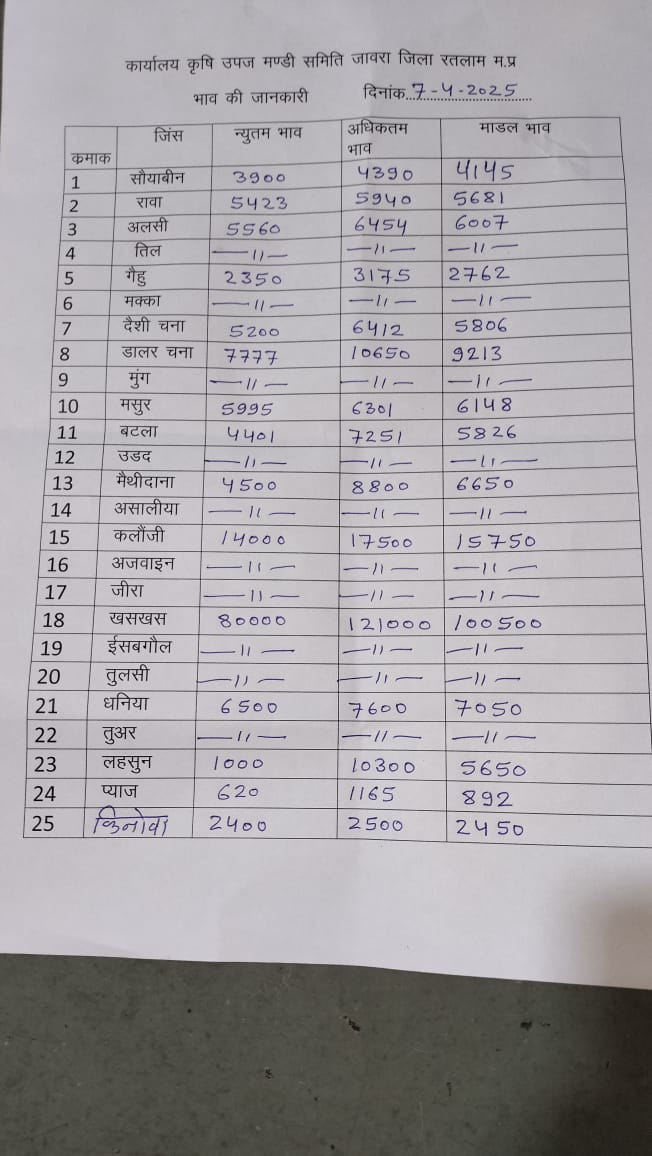 कार्यालय कृषि उपज मण्डी समिति जावरा जिला रतलाम म.प्र
भाव की जानकारी दिनांक 7-4-2025
कमाक जिंस न्युतम भाव अधिकतम भाव माडल भाव
1 सौयाबीन 3900 4390 4145
2 रावा 5423 5940 5681
3 अलसी 5560 6454 6007
4 तिल —11— —11— —11—
5 गैहु 2350 3175 2762
6 मक्का —11— —11— —11—
7 दैशी चना 5200 6412 5806
8 डालर चना 7777 10650 9213
9 मुंग —11— —11— —11—
10 मसुर 5995 6301 6148
11 बटला 4401 7251 5826
12 उडद —11— —11— —11—
13 मैथीदाना 4500 8800 6650
14 असालीया —11— —11— —11—
15 कलौंजी 14000 17500 15750
16 अजवाइन —11— —11— —11—
17 जीरा —11— —11— —11—
18 खसखस 80000 121000 100500
19 ईसबगौल —11— —11— —11—
20 तुलसी —11— —11— —11—
21 धनिया 6500 7600 7050
22 तुअर —11— —11— —11—
23 लहसुन 1000 10300 5650
24 प्याज 620 1165 892
25 किनोवा 2400 2500 2450